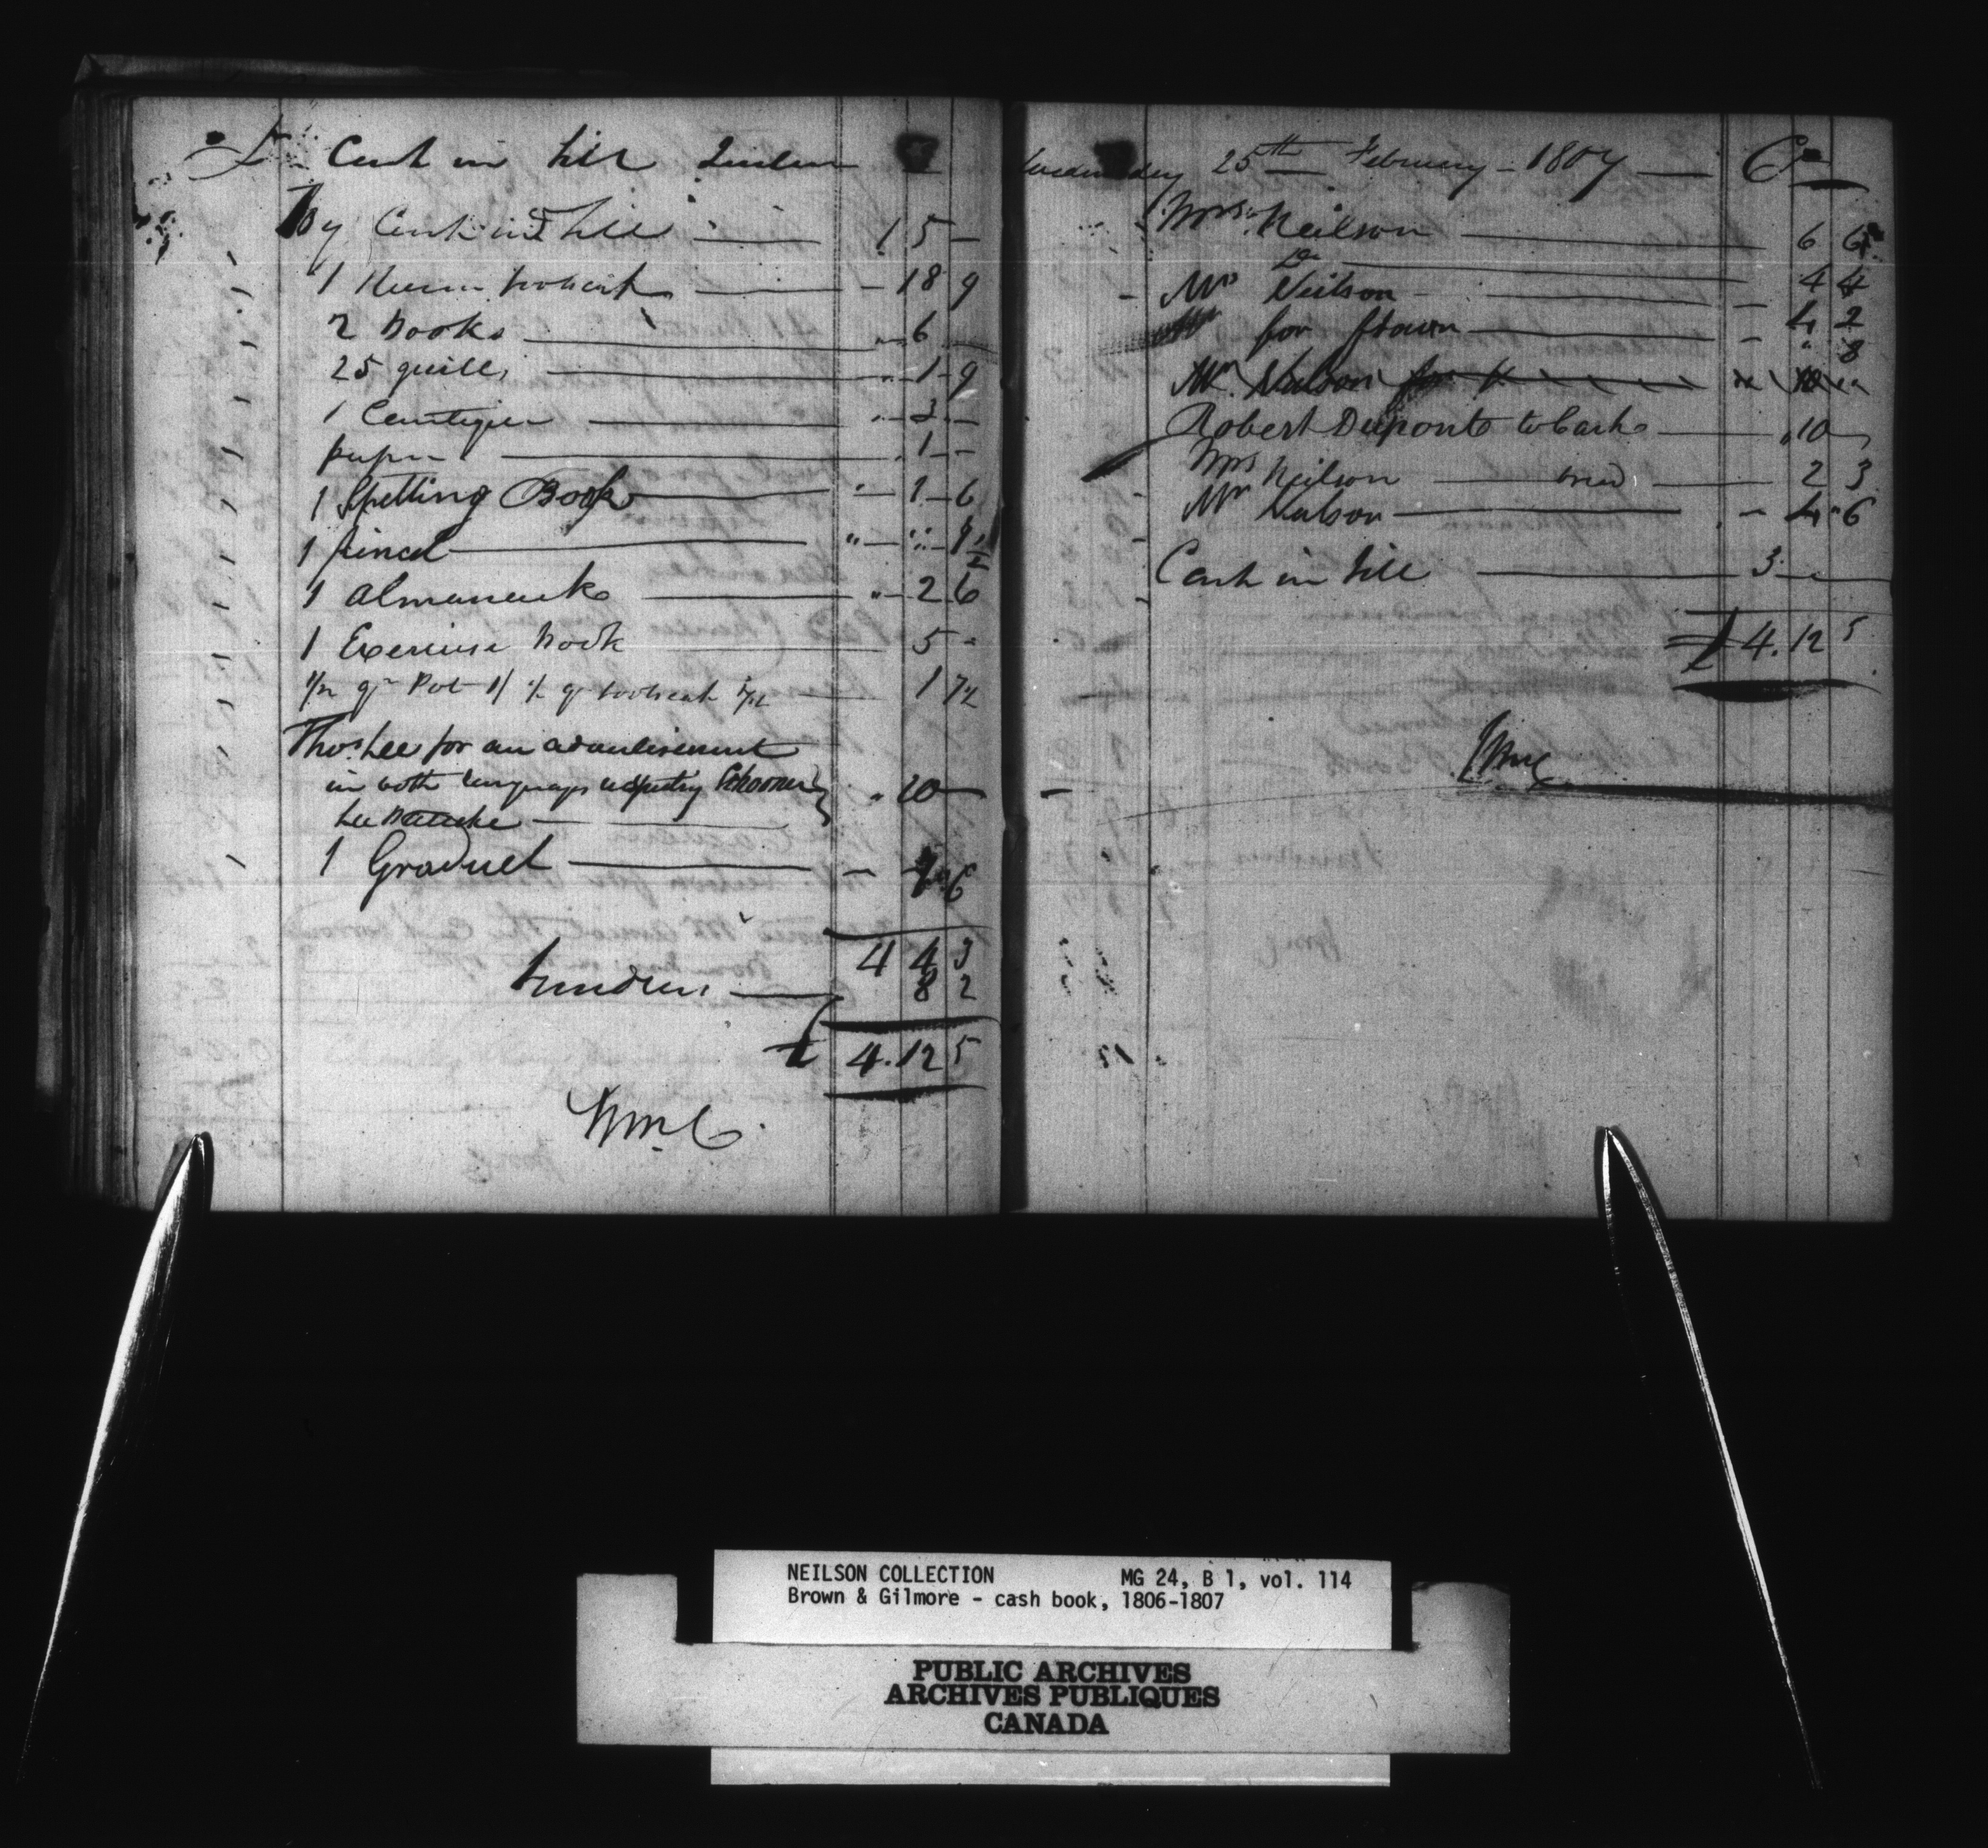 Cash in till Quebec
By Cash in Till 1 5 —
1 Ream 18 9
2 Books 6
25 quills 1 9
1 Cantique 3 —
paper 1 — —
1 Spelling Book 1 6
1 pencil 1/2
1 Almanack 2 6
1 Exercise Book 5 -
1/2 qr Pot 1/ 1 7 1/2
Thos. Lee for an advertisement
in both languages Schooner 20 —
1 Graduel 6
4 4 3
Sundries 8 2
£ 4.12 5
Wednesday 25th February 1807 Cr
Mrs. Neilson 6 6
Do 4 4
Mr Neilson 4 2
for 8
Mr. Neilson 10
Robert Duponts to Cash 10
Mrs Neilson 2 3
Mr Neilson 4 6
Cash in till 3 — —
£ 4.12 5
NEILSON COLLECTION MG 24, B 1, vol. 114
Brown & Gilmore - cash book, 1806-1807
PUBLIC ARCHIVES
ARCHIVES PUBLIQUES
CANADA